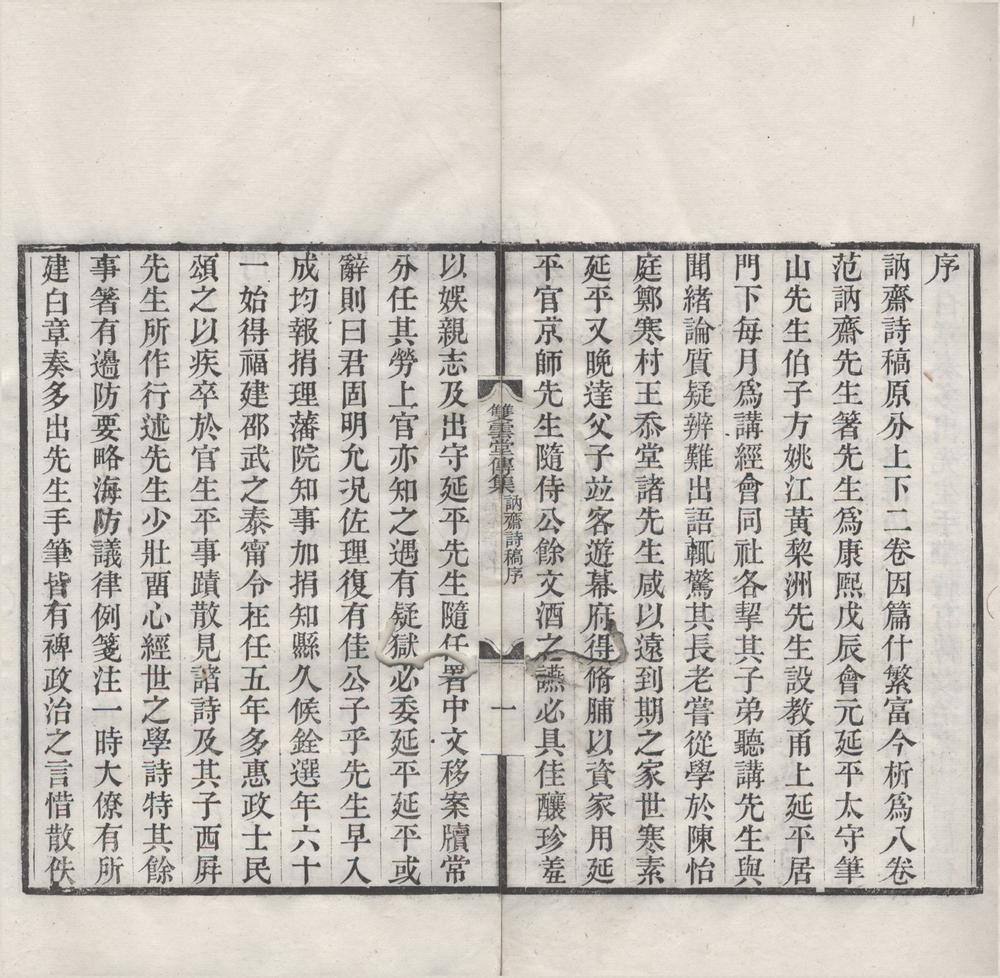 序
訥齋詩稿原分上下二卷因篇什繁富今析爲八卷
范訥齋先生箸先生爲康熙戊辰會元延平太守筆
山先生伯子方姚江黃棃洲先生設教甬上延平居
門下每月爲講經會同社各挈其子弟聽講先生與
聞緒論質疑辨難出語輒驚其長老嘗從學於陳怡
庭鄭寒村王忝堂諸先生咸以遠到期之家世寒素
延平又晚達父子竝客遊幕府得脩脯以資家用延
平官京師先生隨侍公餘文酒之讌必具佳釀珍羞
雙雲堂傳集 訥齋詩稿序 一
以娛親志及出守延平先生隨任署中文移案牘常
分任其勞上官亦知之遇有疑獄必委延平延平或
辭則曰君固明允况佐理復有佳公子乎先生早入
成均報捐理藩院知事加捐知縣久候銓選年六十
一始得福建邵武之泰甯令在任五年多惠政士民
頌之以疾卒於官生平事蹟散見諸詩及其子西屛
先生所作行述先生少壯畱心經世之學詩特其餘
事箸有邊防要略海防議律例箋注一時大僚有所
建白章奏多出先生手筆皆有裨政治之言惜散佚